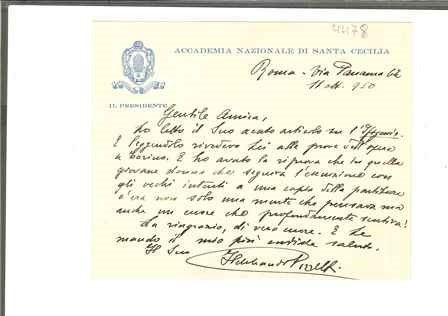 4478
ACCADEMIA NAZIONALE DI SANTA CECILIA
Roma - Via Panama
11 ott. 950
IL PRESIDENTE
Gentile Amica,
ho letto il Suo acuto articolo su l'Ifigenia.
E leggendolo rivedevo Lei alle prove dell'opera
a Torino. E ho avuto la riprova che in quella
giovane donna che seguiva l'esecuzione con
gli occhi intenti a una copia della partitura
c'era non solo una mente che pensava ma
anche un cuore che profondamente sentiva!
La ringrazio, di vero cuore. E Le
mando il mio più cordiale saluto.
Il Suo Ildebrando Pizzetti